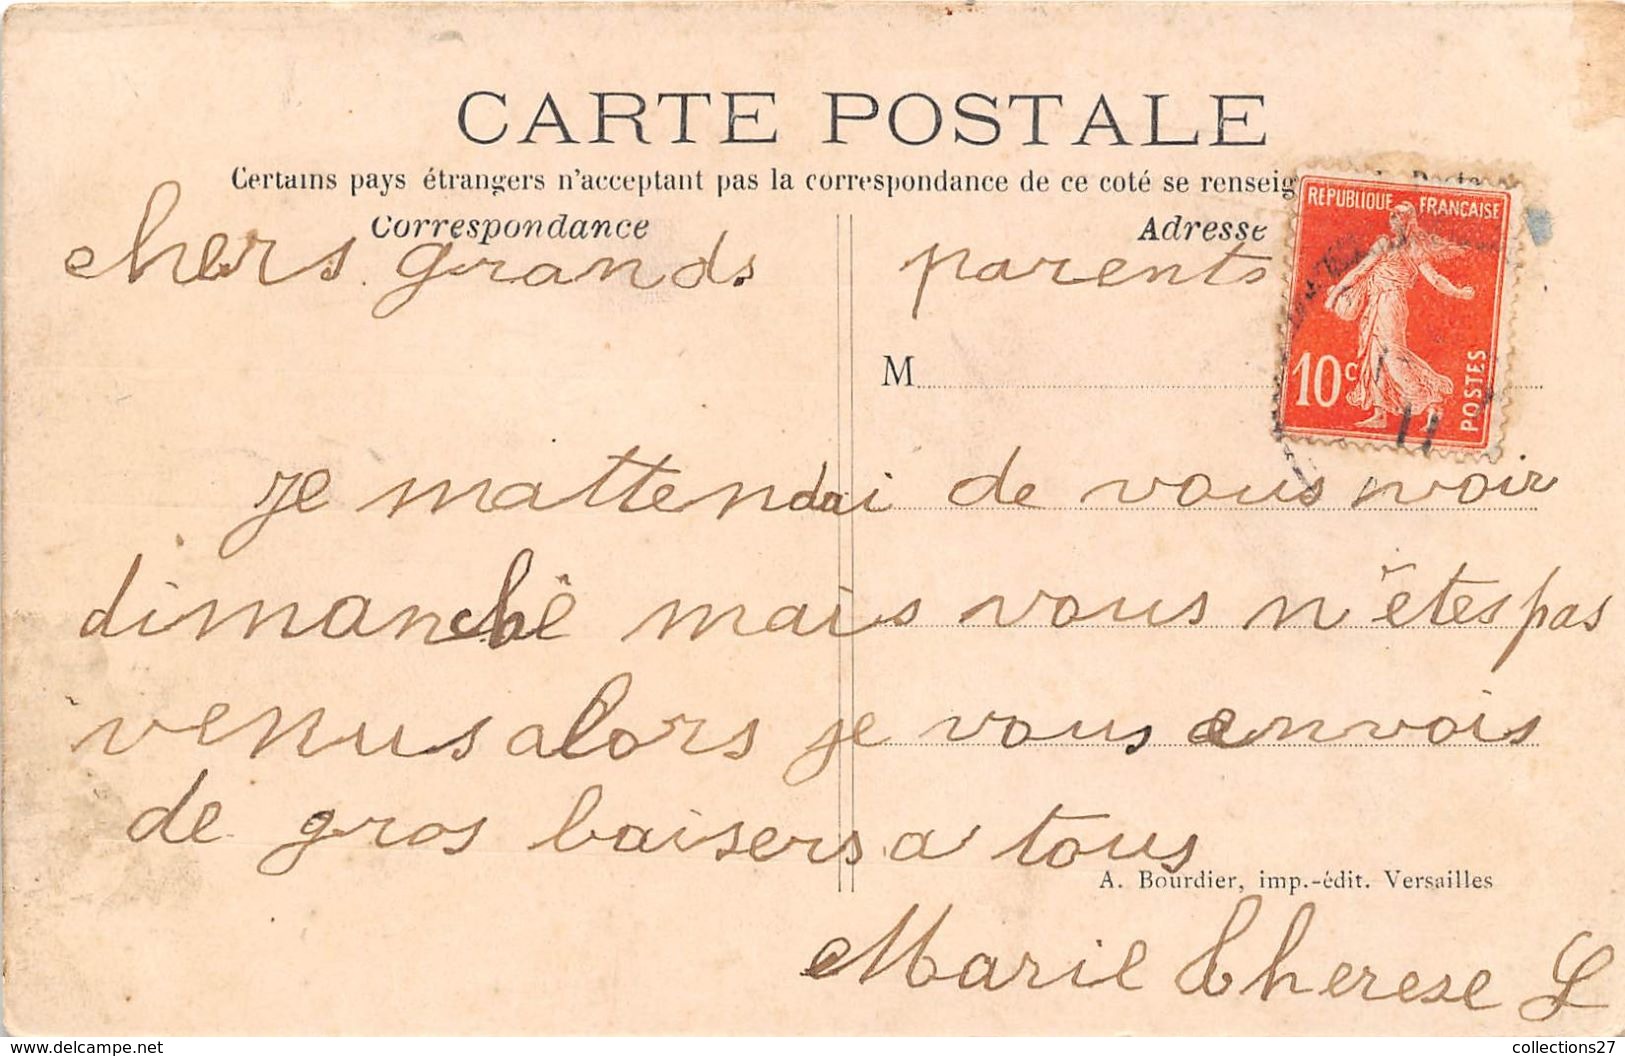 CARTE POSTALE
Certains pays étrangers n'acceptant pas la correspondance de ce coté se renseig
Correspondance Adresse
REPUBLIQUE FRANÇAISE
chers grands parents
M
10c POSTES
11
je mattendai de vous voir
dimanche mais vous n'êtes pas
venus alors je vous envois
de gros baisers a tous
A. Bourdier, imp.-édit. Versailles
Marie Therese L
delcampe.net
collections27